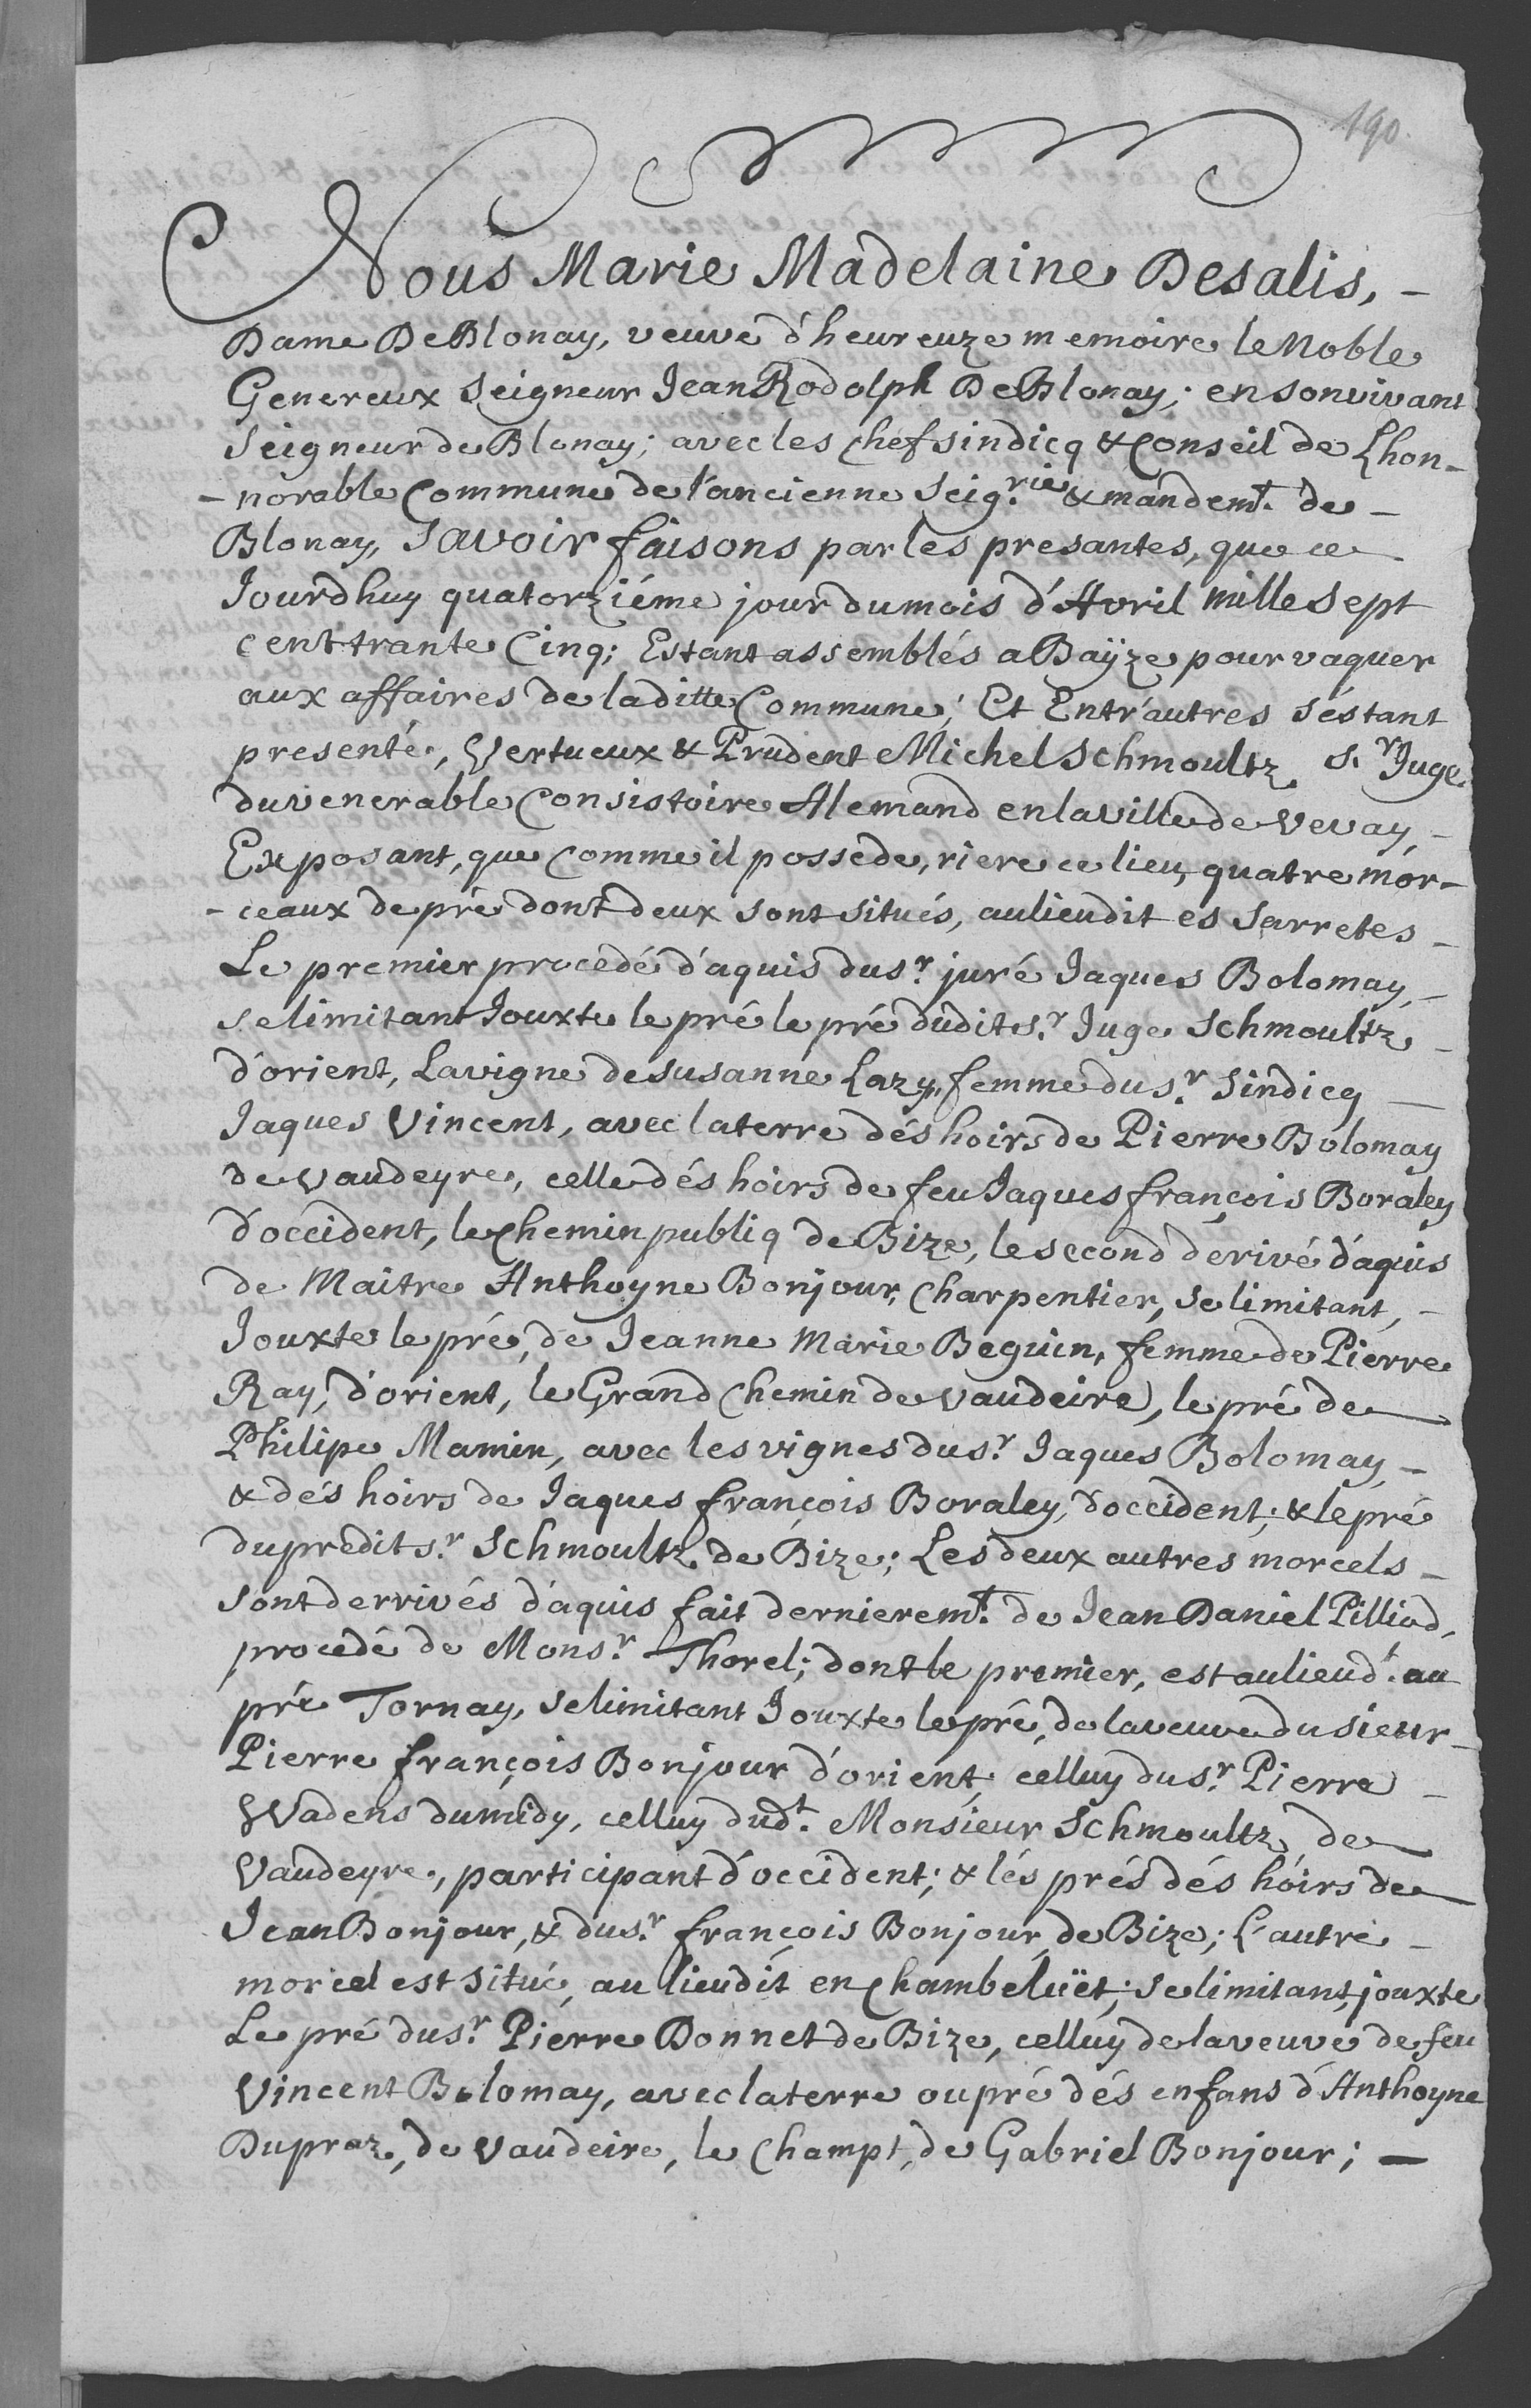 190.
Nous Marie Madelaine Desalis, -
Dame De Blonay, veuve d'heureuze memoire le Noble
Genereux Seigneur Jean Rodolph De Blonay; en son vivant
Seigneur de Blonay; avec les Chef sindicq & Conseil de Lhon-
-norable Commune de l'ancienne Seig.rie & mandem.t de -
Blonay, Savoir faisons par les presantes, que ce
Jourdhuy quatorziéme jour du mois d'Avril mille sept
cent trante Cinq; Estant assemblés a Baÿze pour vaquer
aux affaires de laditte Commune; Et Entr'autres s'éstant
presenté, Vertueux & Prudent Michel Schmoultz S.r Juge
du venerable Consistoire Alemand en la ville de Vevay, -
Exposant, que Comme il possede, riere ce lieu, quatre mor-
-ceaux de pré dont deux sont situés, au lieu dit es Sarretes -
Le premier procedé d'aquis du s.r juré Jaques Bolomay, -
se limitant Jouxte le pré le pré dudit s.r Juge Schmoultz -
d'orient, La vigne de Susanne Lazy, femme du s.r Sindicq -
Jaques Vincent, avec la terre dés hoirs de Pierre Bolomay
de vaudeyre, celle dés hoirs de feu Jaques françois Boraley
d'occident, le Chemin publiq de Bize, le second derivé d'aquis
de Maitre Anthoyne Bonjour, Charpentier, se limitant, -
Jouxte le pré, de Jeanne Marie Beguin, femme de Pierre
Ray, d'orient, le Grand Chemin de vaudeire, le pré de
Philipe Mamin, avec les vignes du s.r Jaques Bolomay, -
& dés hoirs de Jaques françois Boraley, d'occident; & le pré
du predit s.r Schmoultz de Bize; Les deux autres morcels -
sont derrivés d'aquis fait dernierem.t de Jean Daniel Pilliod,
procedé de Mons.r Thorel; dont le premier, est au lieu d.t au
pré Tornay, se limitant Jouxte le pré, de la veuve du sieur -
Pierre françois Bonjour d'orient, celluy du s.r Pierre -
Wadens du midy, celluy dud.t Monsieur Schmoultz de
Vaudeyre, participant d'occident; & lés prés dés hoirs de
Jean Bonjour, & du s.r françois Bonjour de Bize; L'autre -
morcel est situé, au lieu dit en Chambelüet; se limitant, jouxte
Le pré du s.r Pierre Bonnet de Bize, celluy de la veuve de feu
Vincent Bolomay, avec la terre ou pré dés enfans d'Anthoyne
Dupraz, de vaudeire, le Champt, de Gabriel Bonjour; -